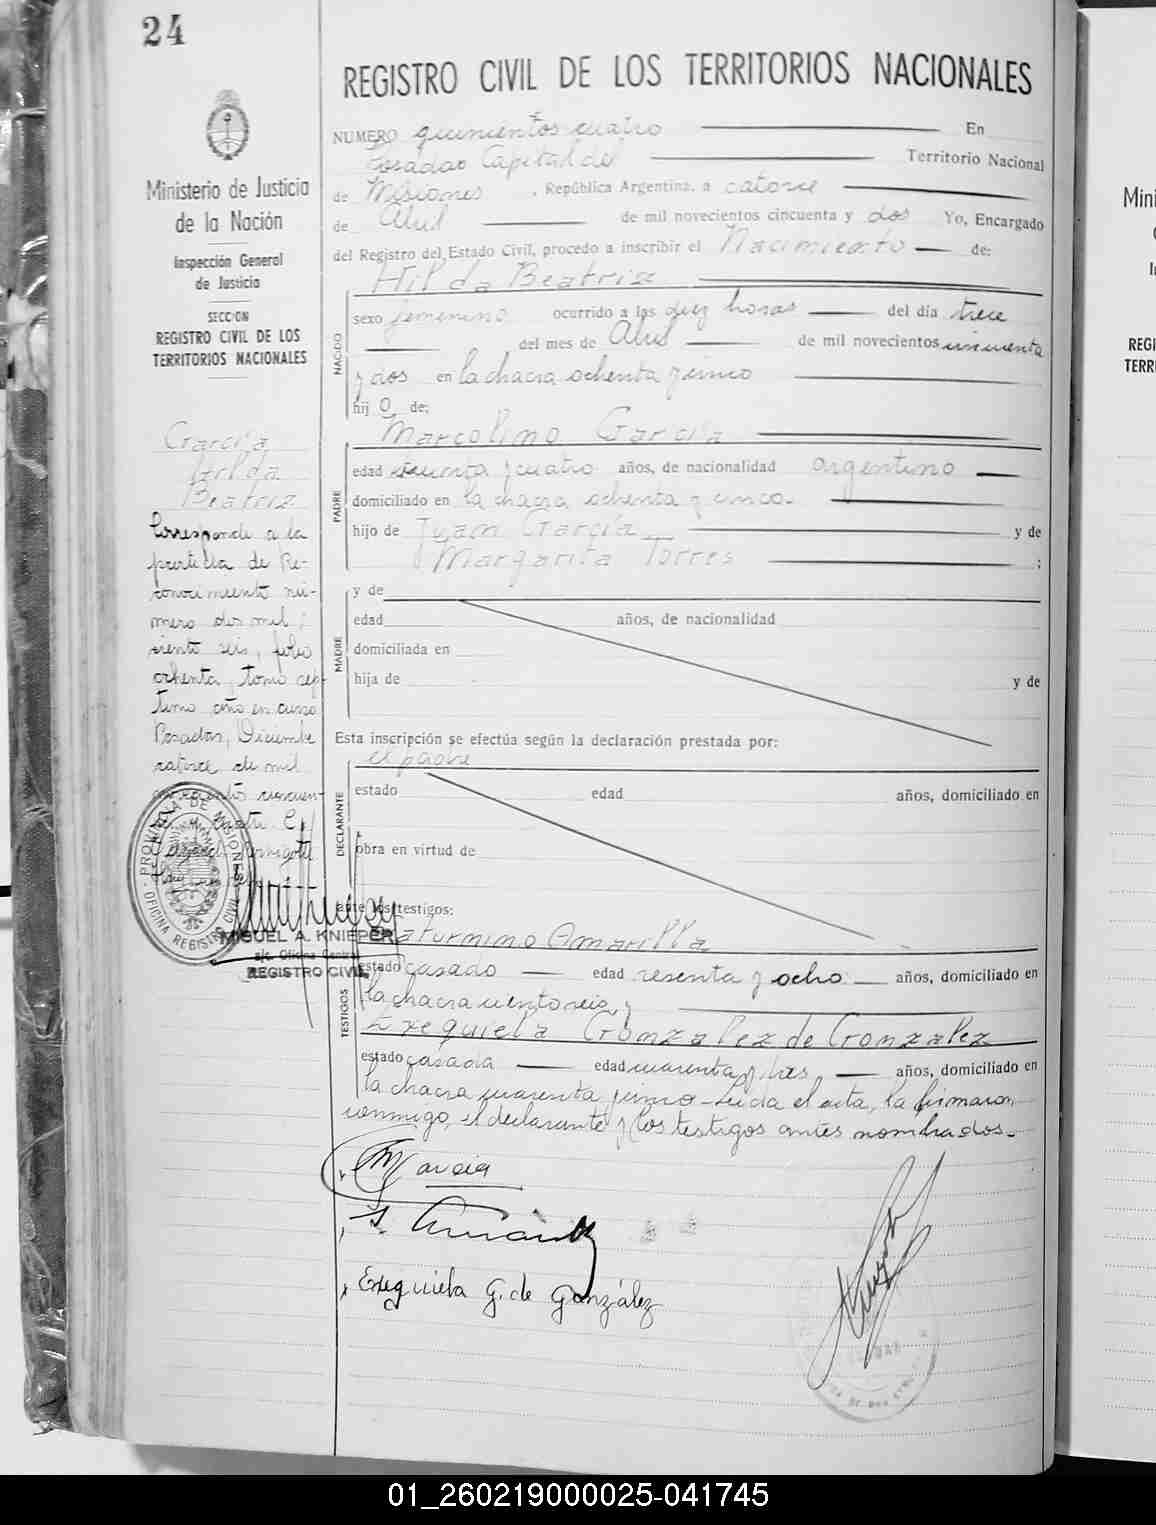 24
REGISTRO CIVIL DE LOS TERRITORIOS NACIONALES
Ministerio de Justicia
de la Nación
Inspección General
de Justicia
SECCION
REGISTRO CIVIL DE LOS
TERRITORIOS NACIONALES
García
Hilda
Beatriz
Corresponde a la
partida de Re-
conocimiento nú-
mero dos mil
ciento seis, folio
ochenta, tomo sép-
timo año en curso
Posadas, Diciembre
catorce de mil
novecientos cincuen-
PROVINCIA DE MISIONES
OFICINA REGISTRO CIVIL
MIGUEL A. KNIEPER
a/c. Oficina Central
REGISTRO CIVIL
NUMERO quinientos cuatro En
Posadas Capital del Territorio Nacional
de Misiones, República Argentina, a catorce
de Abril de mil novecientos cincuenta y dos Yo, Encargado
del Registro del Estado Civil, procedo a inscribir el Nacimiento de:
NACIDO
Hilda Beatriz
sexo femenino ocurrido a las diez horas del día trece
del mes de Abril de mil novecientos cincuenta
y dos en la chacra ochenta y cinco
hij o de:
PADRE
Marcolino García
edad y cuatro años, de nacionalidad argentino
domiciliado en la chacra ochenta y cinco.
hijo de Juan García y de
Margarita Torres ;
MADRE
y de
edad años, de nacionalidad
domiciliada en
hija de y de
Esta inscripción se efectúa según la declaración prestada por:
DECLARANTE
el padre
estado edad años, domiciliado en
obra en virtud de
ante los testigos:
TESTIGOS
Saturnino Amarilla
estado casado edad sesenta y ocho años, domiciliado en
la chacra ciento seis y
Exequiela Gonzalez de Gonzalez
estado casada edad cuarenta y tres años, domiciliado en
la chacra cuarenta y cinco - Leída el acta, la firmaron
conmigo, el declarante y los testigos antes nombrados.-
M García
Exequiela G. de González
01_260219000025-041745
Mini
REGI
TERR